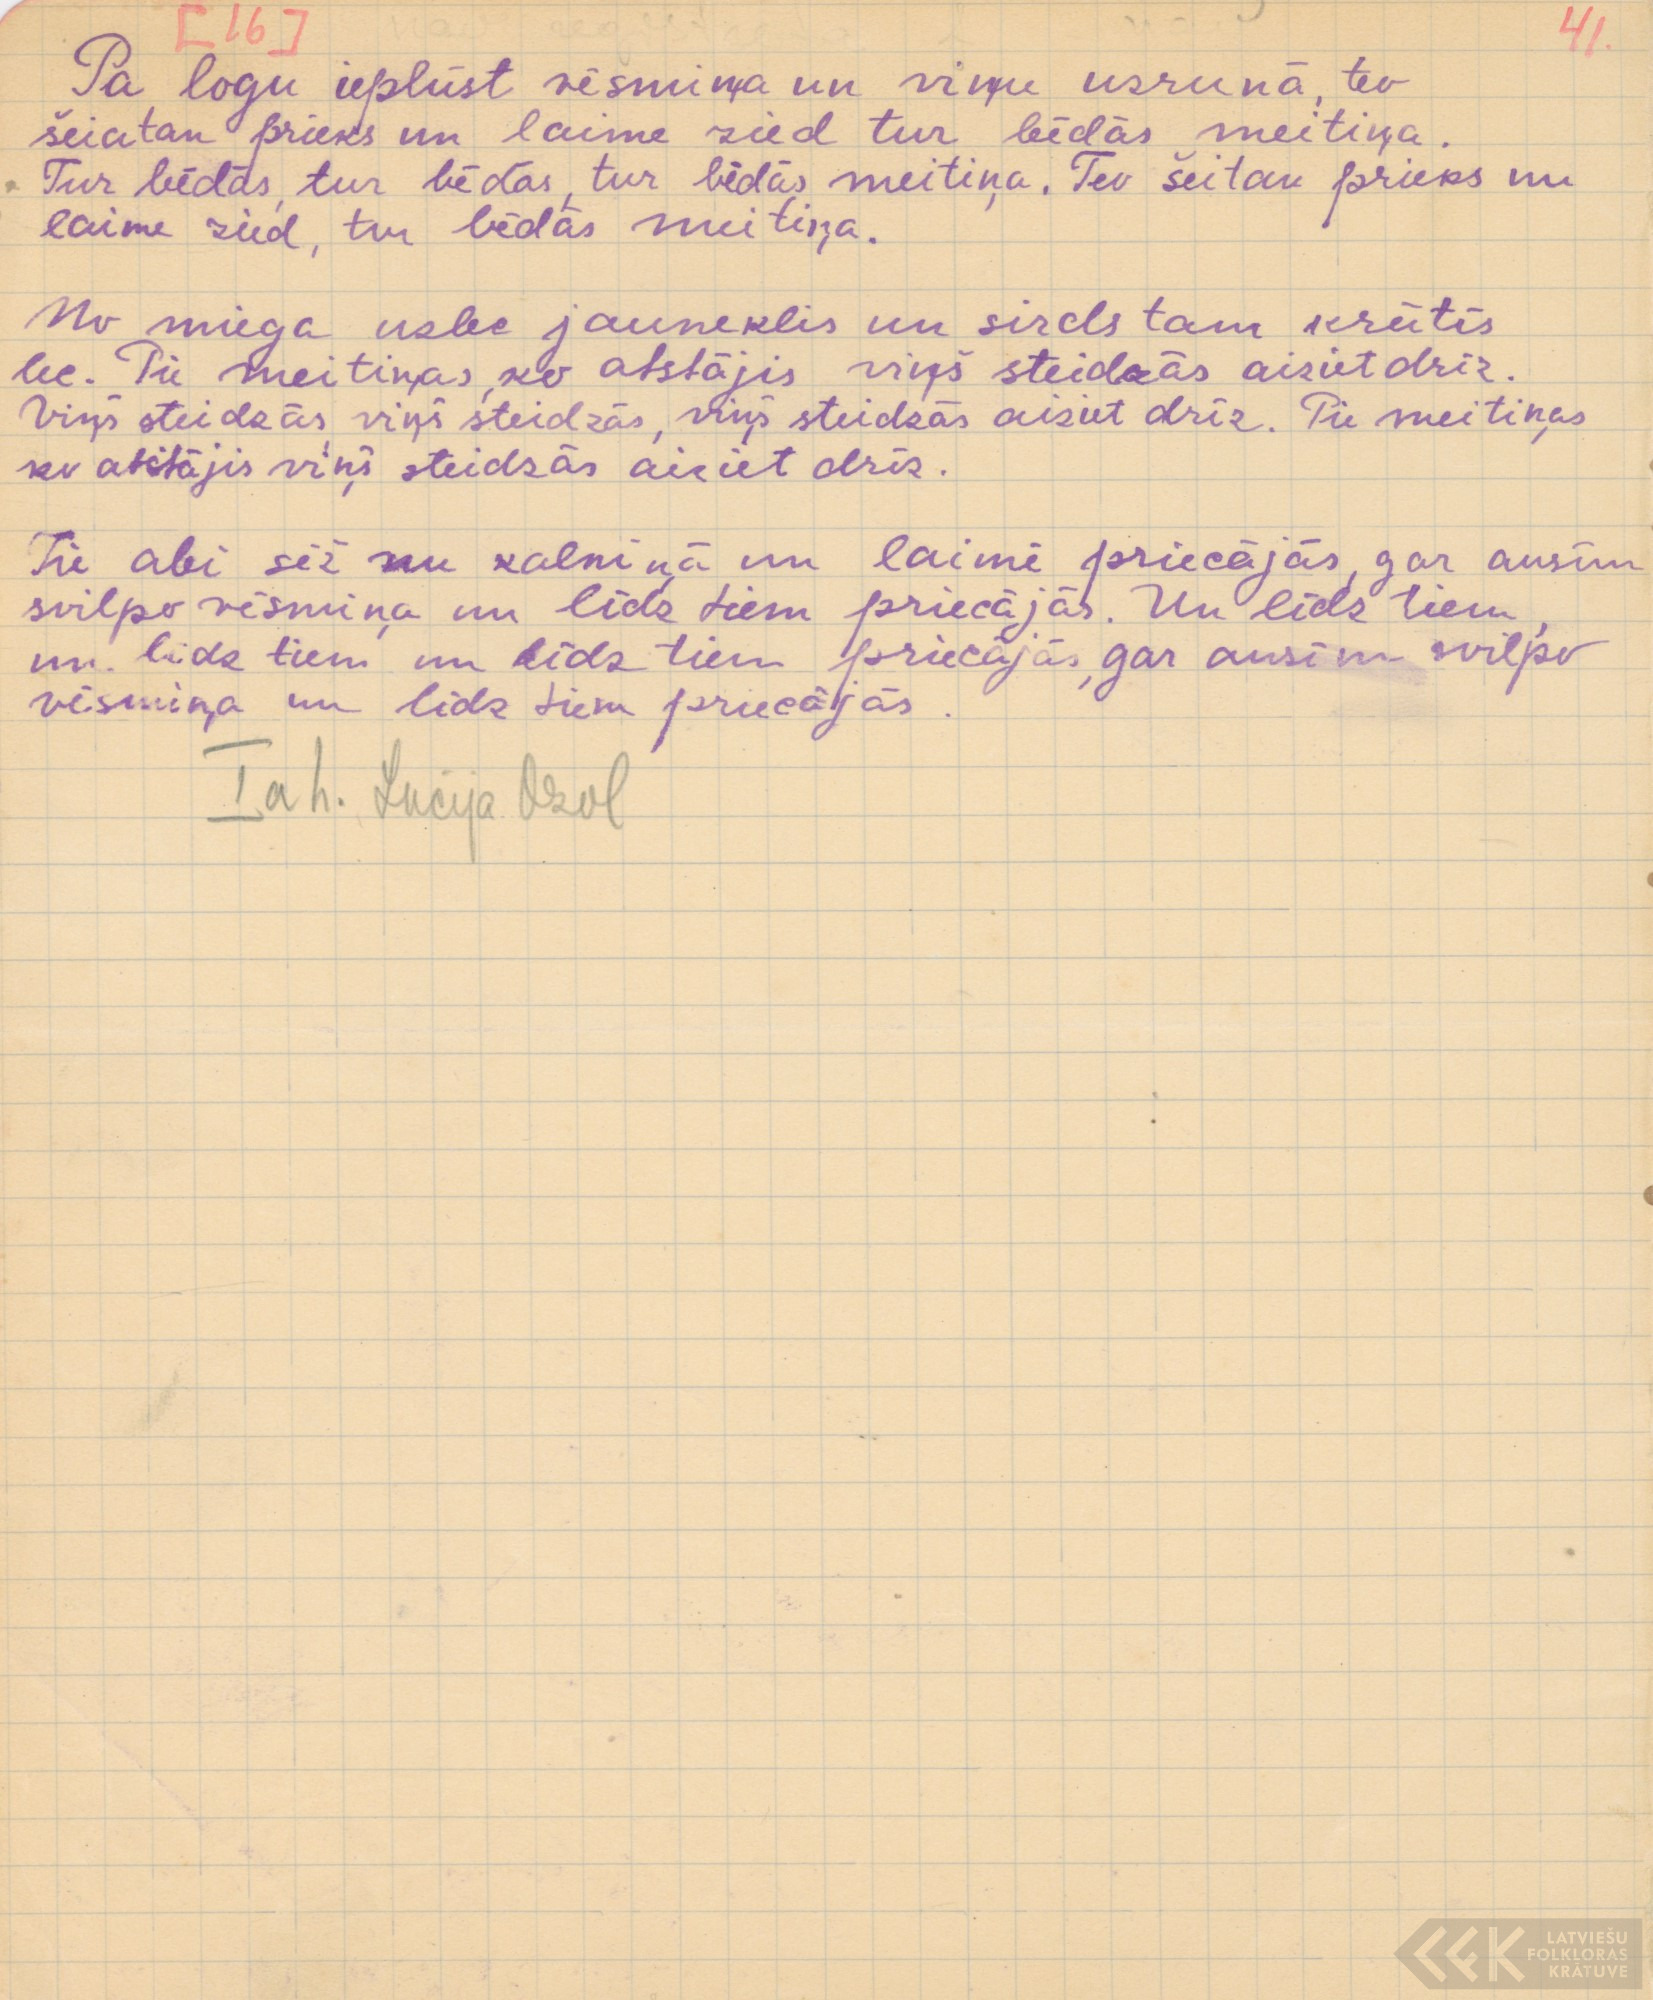 [16] 41.
Pa logu ieplūst vēsmiņa un viņu uzrunā, tev
šeiatan prieks un laime zied tur bēdās meitiņa.
Tur bēdās, tur bēdās, tur bēdās meitiņa. Tev šeitan prieks un
laime zied, tur bēdās meitiņa.
No miega uzlec jauneklis un sirds tam krūtīs
lec. Pie meitiņas, ko atstājis viņš steidzās aiziet drīz.
Viņš steidzās, viņš steidzās, viņš steidzās aiziet drīz. Pie meitiņas
ko atstājis viņš steidzās aiziet drīz.
Tie abi sēž nu kalniņā un laimē priecājās, gar ausīm
svilpo vēsmiņa un līdz tiem priecājās. Un līdz tiem,
un līdz tiem un līdz tiem priecājās, gar ausīm svilpo
vēsmiņa un līdz tiem priecājās.
I a h. Lucija Ozol
LATVIEŠU
FOLKLORAS
KRĀTUVE